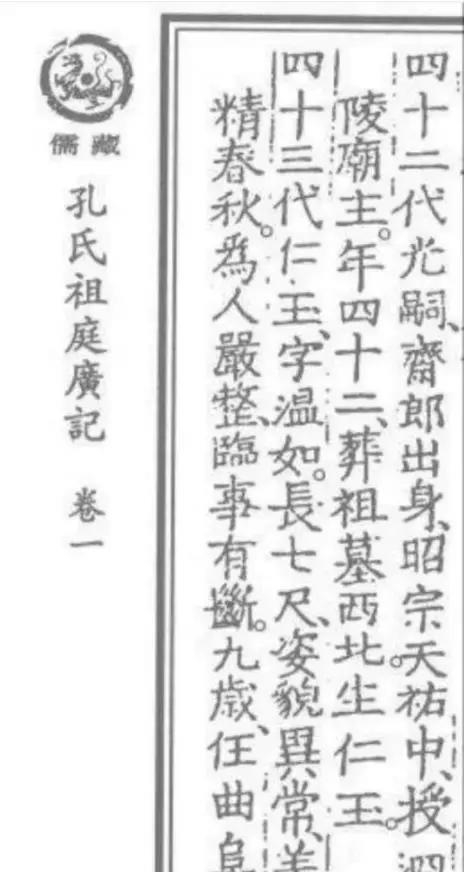 四十二代光嗣、齋郎出身、昭宗天祐中、授泗
陵廟主。年四十二、葬祖墓西北。生仁玉。
四十三代仁玉、字温如。長七尺、姿貌異常、善
精春秋。爲人嚴整、臨事有斷。九歲、任曲阜
孔氏祖庭廣記 卷一
儒藏